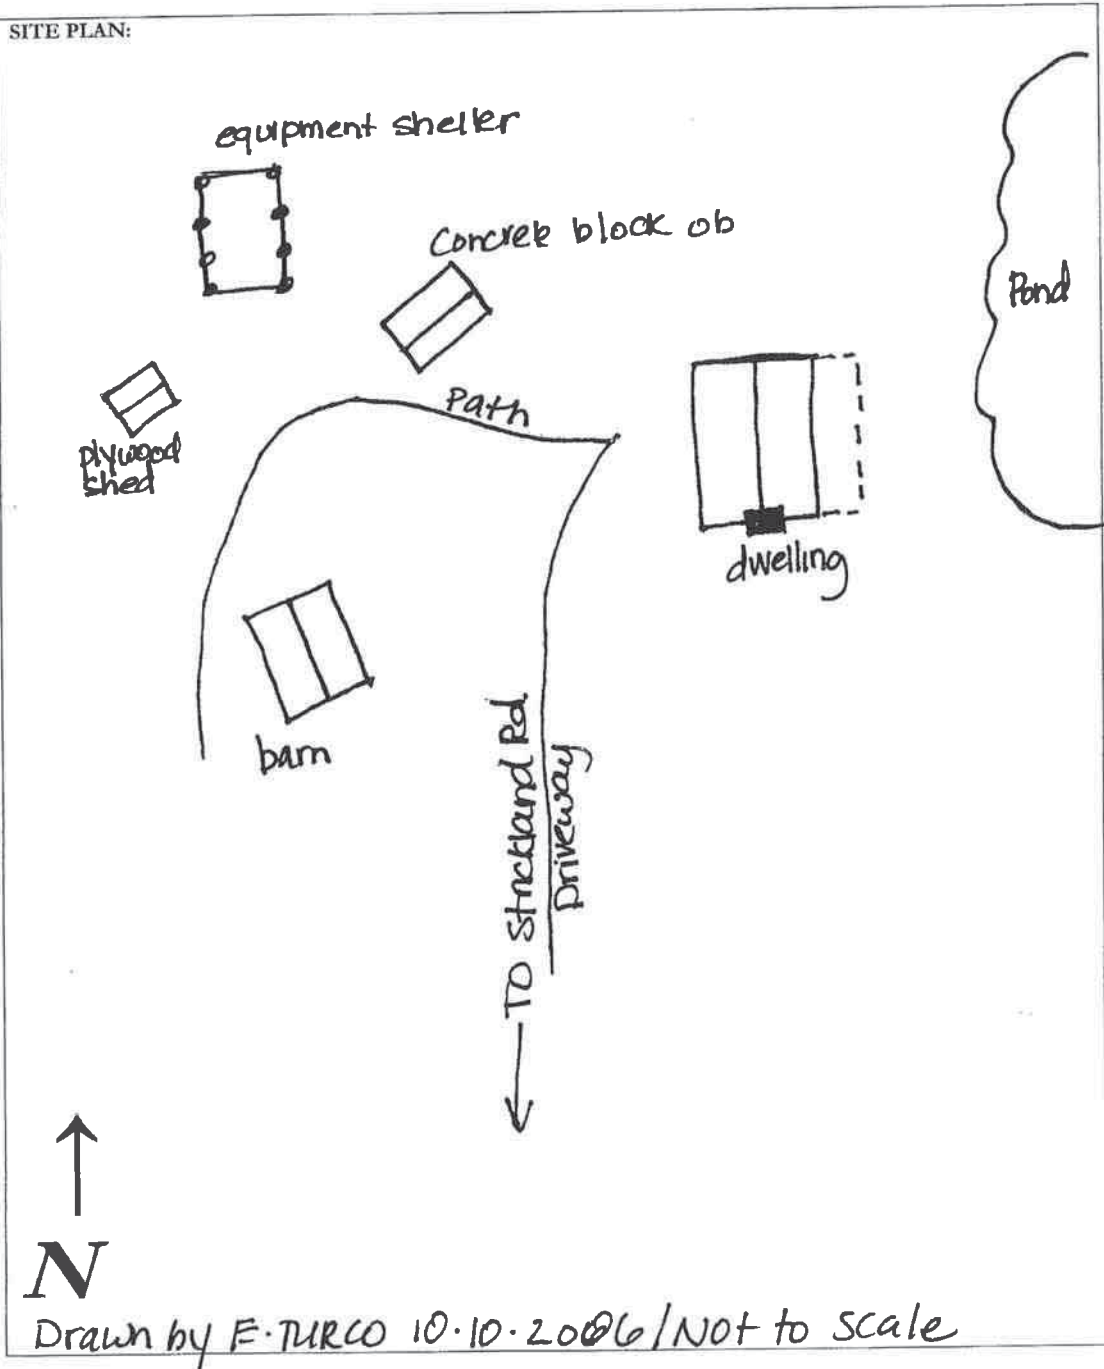 SITE PLAN:
equipment shelter
Concrete block ob
Pond
Path
plywood
shed
dwelling
barn
TO Strickland Rd.
Driveway
N
Drawn by E. TURCO 10.10.2006/Not to scale